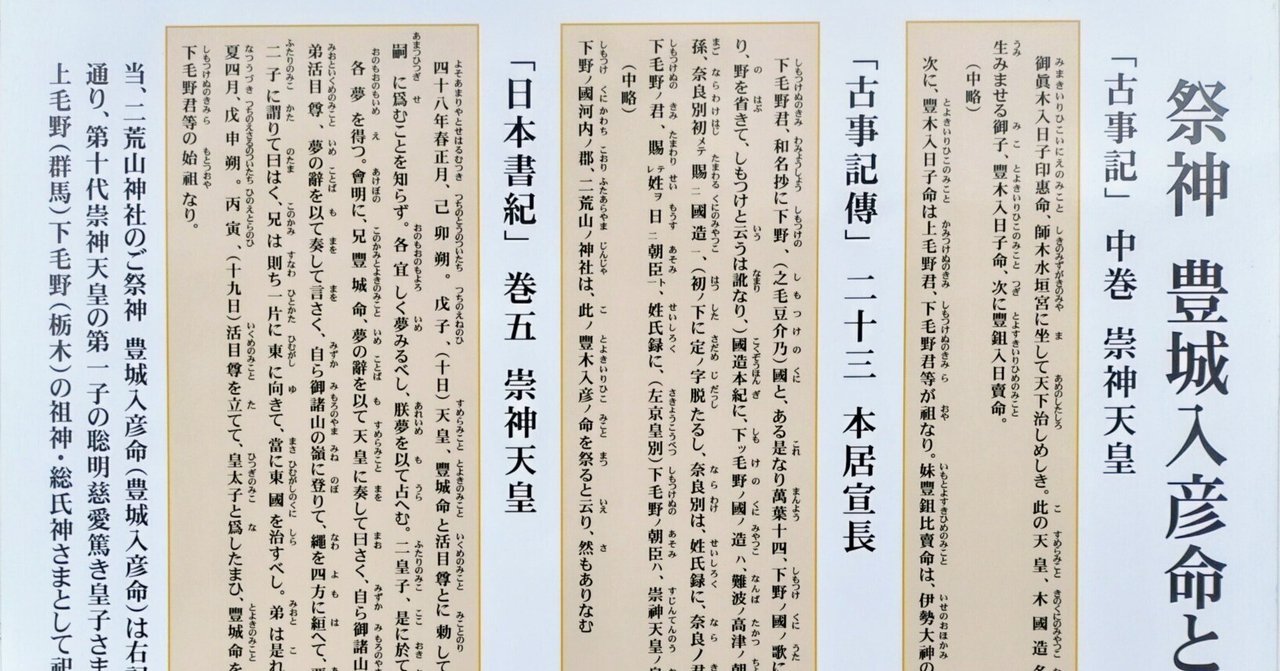 祭神 豊城入彦命と
「古事記」 中巻 崇神天皇
御眞木入日子印惠命、師木水垣宮に坐して天下治しめしき。此の天皇、木國造
生みませる御子、豊木入日子命、次に豐鉏入日賣命。
（中略）
次に、豐木入日子命は上毛野君、下毛野君等が祖なり。妹豐鉏比賣命は、伊勢大神の
「古事記傳」 二十三 本居宣長
下毛野君、和名抄に下野、（之毛豆介乃）國と、ある是なり萬葉十四、下野ノ國ノ歌に
り、野を省きて、しもつけと云うは訛なり、）國造本紀に、下ッ毛野ノ國ノ造ハ、難波ノ高津ノ朝
孫、奈良別初メテ賜ニ國造一、（初ノ下に定ノ字脱たるし、奈良別は、姓氏録に、奈良ノ君
下毛野ノ君、賜レ姓ヲ日ニ朝臣一ト、姓氏録に、（左京皇別）下毛野ノ朝臣ハ、崇神天皇ノ
（中略）
下野ノ國河内ノ郡、二荒山ノ神社は、此ノ豐木入彦ノ命を祭ると云り、然もありなむ
「日本書紀」 巻五 崇神天皇
四十八年春正月、己卯朔。戊子、（十日）天皇、豐城命と活目尊とに勅して
嗣に爲むことを知らず。各宜しく夢みるべし、朕夢を以て占へむ。二皇子、是に於て
各夢を得つ。會明に、兄豐城命夢の辭を以て天皇に奏して曰さく、自ら御諸山
弟活目尊、夢の辭を以て奏して言さく、自ら御諸山の嶺に登りて、繩を四方に絚へて、
二子に謂りて曰はく、兄は則ち一片に東に向きて、當に東國を治すべし。弟は是れ
夏四月、戊申朔。丙寅、（十九日）活目尊を立てて、皇太子と爲したまひ、豐城命を
下毛野君等の始祖なり。
当、二荒山神社のご祭神 豊城入彦命（豊城入彦命）は右記
通り、第十代崇神天皇の第一子の聡明慈愛篤き皇子さま
上毛野（群馬）下毛野（栃木）の祖神・総氏神さまとして祀